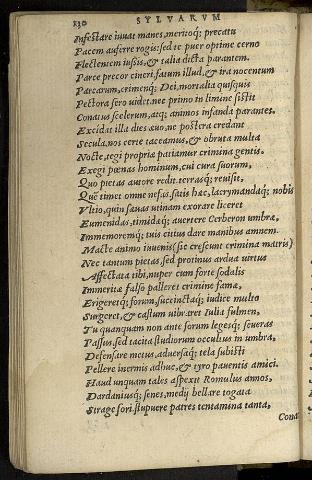 130 SYLVARVM
Infestare iuuat manes, meritoq; precatu
Pacem auferre rogis: sed te puer optime cerno
Flectentem iustis, & talia dicta parantem.
Parce precor cineri, fatum illud, & ira nocentum
Parcarum, crimenq; Dei, mortalia quisquis
Pectora sero uidet. nec primo in limine sistit
Conatus scelerum, atq; animos infanda parantes.
Excidat illa dies æuo, ne postera credant
Secula, nos certe taceamus, & obruta multa
Nocte, tegi propria patiamur crimina gentis.
Exegi pœnas hominum, cui cura suorum,
Quo pietas autore redit. terrasq; reuisit,
Quē timet omne nefas, satis hæc, lacrymandaq; nobis
Vltio, quin sæuas utinam exorare liceret
Eumenidas, timidæq; auertere Cerberon umbræ,
Immemoremq; tuis citius dare manibus amnem.
Macte animo iuuenis (sic crescunt crimina matris)
Nec tantum pietas, sed protinus ardua uirtus
Affectata tibi, nuper cum forte sodalis
Immeritæ falso palleret crimine famæ,
Erigeretq; forum, succinctaq; iudice multo
Surgeret, & castum uibraret Iulia fulmen,
Tu quanquam non ante forum legesq; seueras
Passus, sed tacita studiorum occultus in umbra,
Defensare metus, aduersaq; tela subisti
Pellere inermis adhuc, & tyro pauentis amici.
Haud unquam tales aspexit Romulus annos,
Dardaniusq; senex, medij bellare togata
Strage fori. stupuere patres tentamina tanta,
Cona